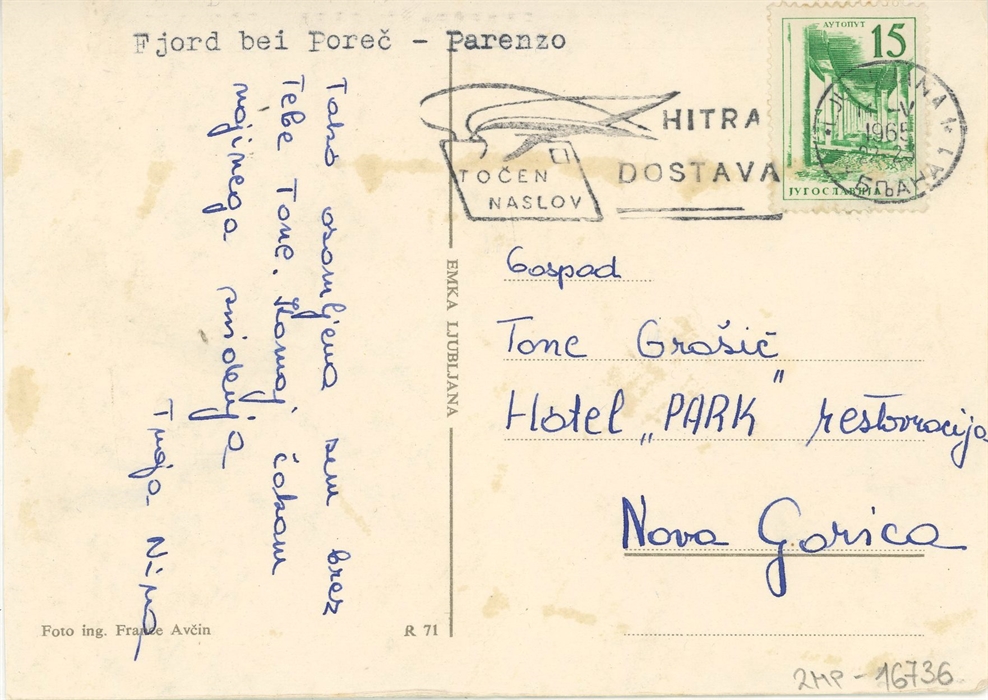 Fjord bei Poreč - Parenzo
Tako osamljena sem brez
Tebe Tone. Komaj čakam
najinega snidenja
Tvoja Nina
TOČEN
NASLOV
HITRA
DOSTAVA
АУТОПУТ
15
ЈУГОСЛАВИЈА
1965
EMKA LJUBLJANA
Gospod
Tone Grošič
Hotel „PARK" restavracija
Nova Gorica
Foto ing. France Avčin
R 71
2MP-16736